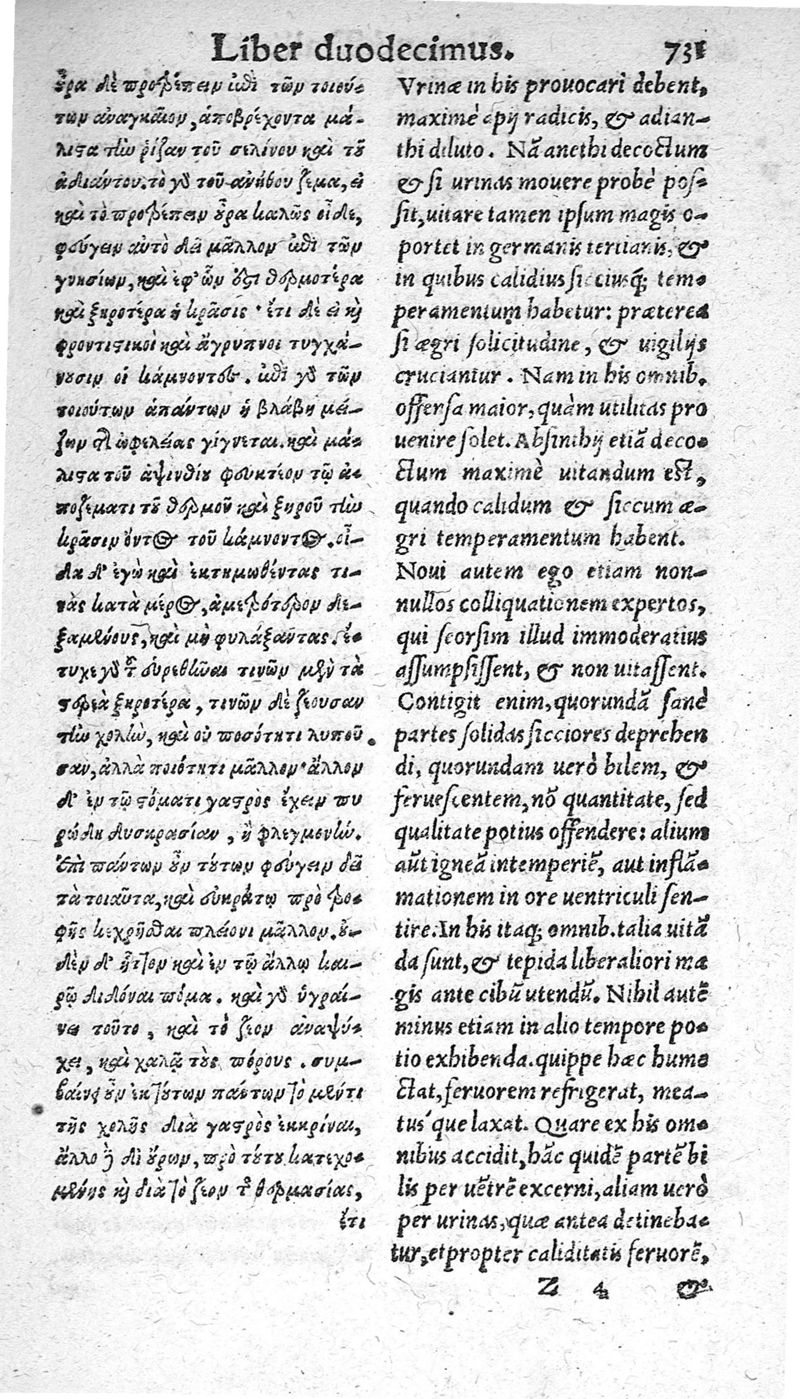 Liber duodecimus. 731
οὖρα δὲ προτρέπειν ἐπὶ τῶν τοιού-
των ἀναγκαῖον, ἀποβρέχοντα μά-
λιστα τὴν ῥίζαν τοῦ σελίνου καὶ τοῦ
ἀδιάντου. τὸ γὰρ τοῦ ἀνήθου ζέμα, εἰ
καὶ τὸ προτρέπειν οὖρα καλῶς οἶδε,
φεύγειν αὐτὸ δεῖ μᾶλλον ἐπὶ τῶν
γνησίων, καὶ ἐφ' ὧν ἐστι θερμοτέρα
καὶ ξηροτέρα ἡ κρᾶσις· ἔτι δὲ εἰ καὶ
φροντιστικοὶ καὶ ἄγρυπνοι τυγχά-
νουσιν οἱ κάμνοντες. ἐπὶ γὰρ τῶν
τοιούτων ἁπάντων ἡ βλάβη μεί-
ζων τῆς ὠφελείας γίγνεται. καὶ μά-
λιστα τοῦ ἀψινθίου φευκτέον τῷ ἀ-
ποζέματι τοῦ θερμοῦ καὶ ξηροῦ τὴν
κρᾶσιν ὄντος τοῦ κάμνοντος. οἶ-
δα δ' ἐγὼ καὶ ἐκτηχθέντας τι-
νὰς κατὰ μέρος, ἀμετρότερον δε-
ξαμένους, καὶ μὴ φυλάξαντας. ἔ-
τυχε γὰρ εὑρεθῆναι τινῶν μὲν τὰ
στερεὰ ξηροτέρα, τινῶν δὲ ζέουσαν
τὴν χολὴν, καὶ οὐ ποσότητι λυποῦ-
σαν, ἀλλὰ ποιότητι μᾶλλον· ἄλλον
δ' ἐν τῷ στόματι γαστρὸς ἔχειν πυ
ρώδη δυσκρασίαν, ἢ φλεγμονὴν.
ἐπὶ πάντων οὖν τούτων φεύγειν δεῖ
τὰ τοιαῦτα, καὶ εὐκράτῳ πρὸ τρο-
φῆς κεχρῆσθαι πλείονι μᾶλλον. οὐ-
δὲν δ' ἧττον καὶ ἐν τῷ ἄλλῳ και-
ρῷ διδόναι πόμα. καὶ γὰρ ὑγραί-
νει τοῦτο, καὶ τὸ ζέον ἀναψύ-
χει, καὶ χαλᾷ τοὺς πόρους. συμ-
βαίνει οὖν ἐκ τούτων πάντων τὸ μέν τι
τῆς χολῆς διὰ γαστρὸς ἐκκρίναι,
ἄλλο δὲ δι' οὔρων, πρὸ τούτου κατεχο-
μένης καὶ διὰ τὸ ζέον τῆς θερμασίας,
ἔτι
Vrinæ in his prouocari debent,
maximè apij radicis, & adian-
thi diluto. Nā anethi decoctum
& si urinas mouere probè pos-
sit, uitare tamen ipsum magis o-
portet in germanis tertianis, &
in quibus calidius sicciusq́; tem-
peramentum habetur: præterea
si ægri solicitudine, & uigilijs
cruciantur. Nam in his omnib.
offensa maior, quàm utilitas pro
uenire solet. Absinthij etiā deco-
ctum maximè uitandum est,
quando calidum & siccum æ-
gri temperamentum habent.
Noui autem ego etiam non-
nullos colliquationem expertos,
qui seorsim illud immoderatius
assumpsissent, & non uitassent.
Contigit enim, quorundā sanè
partes solidas sicciores deprehen
di, quorundam uerò bilem, &
feruescentem, nō quantitate, sed
qualitate potius offendere: alium
aūt igneā intemperiē, aut inflā-
mationem in ore uentriculi sen-
tire. In his itaq; omnib. talia uitā
da sunt, & tepida liberaliori ma
gis ante cibū utendū. Nihil autē
minus etiam in alio tempore po-
tio exhibenda. quippe hæc hume
ctat, feruorem refrigerat, mea-
tus´que laxat. Quare ex his om-
nibus accidit, hāc quidē partē bi
lis per uētrē excerni, aliam uerò
per urinas, quæ antea detineba-
tur, et propter caliditatis feruorē,
Z 4 &